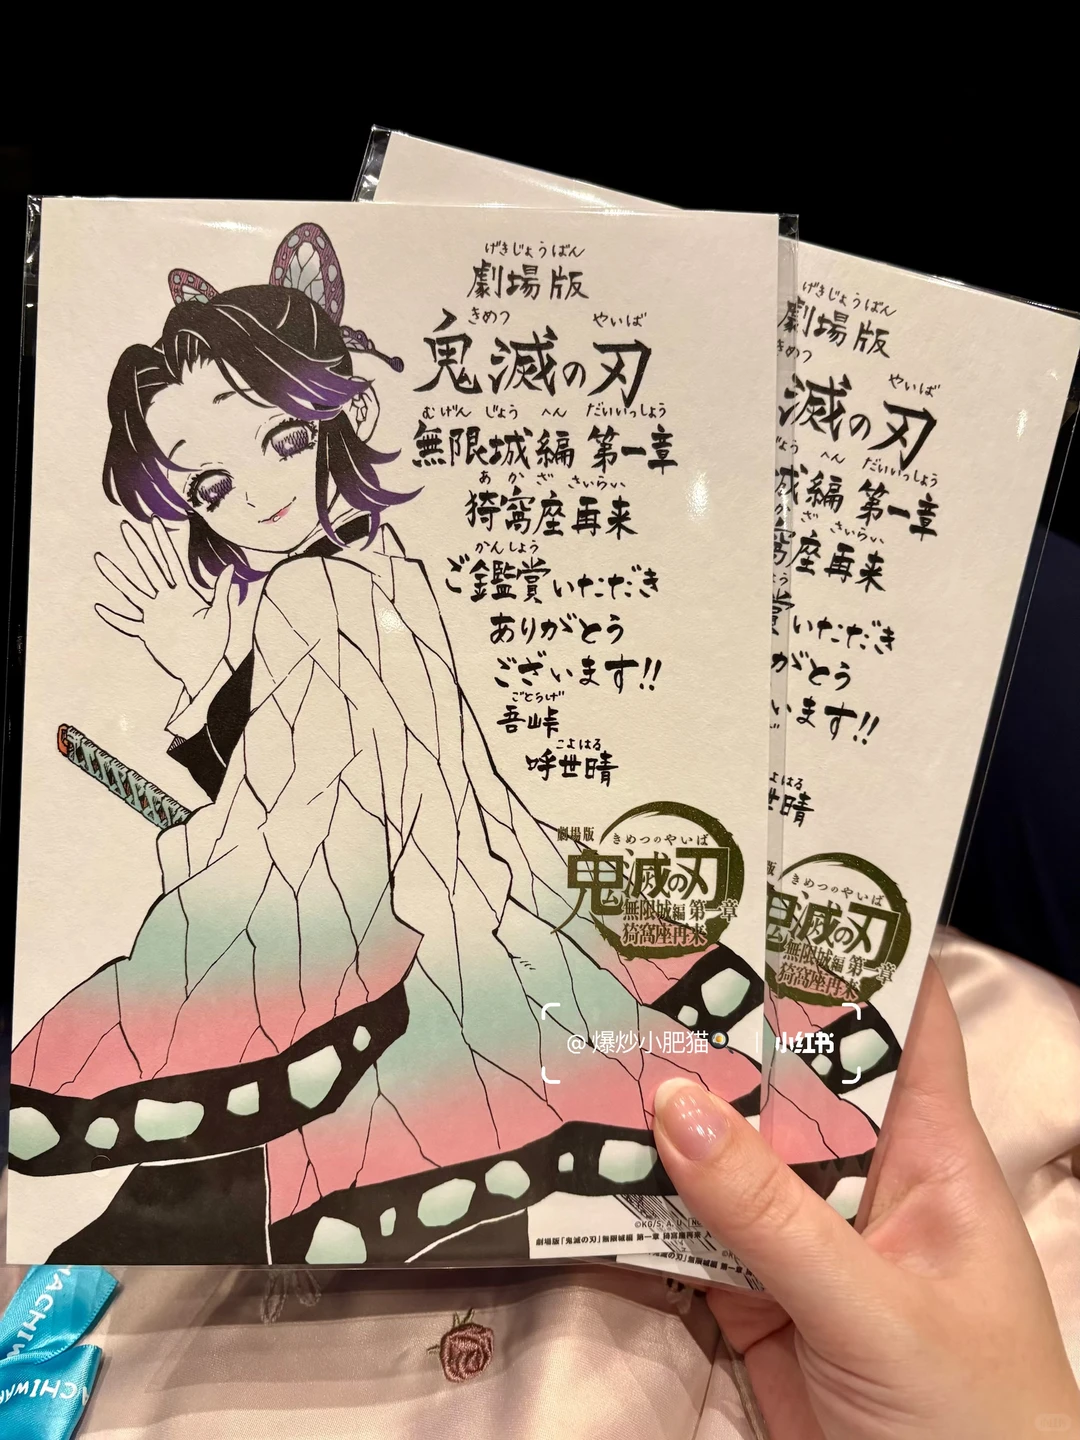 げきじょうばん
劇場版
きめつ やいば
鬼滅の刃
むげん じょう へん だいいっしょう
無限城編 第一章
あかざ さいらい
猗窩座再来
かんしょう
ご鑑賞いただき
ありがとう
ございます!!
ごとうげ
吾峠
こよはる
呼世晴
劇場版
きめつのやいば
鬼滅の刃
無限城編 第一章
猗窩座再来
げきじょうばん
劇場版
きめつ やいば
滅の刃
じょう へん だいいっしょう
城編 第一章
ざ さいらい
窩座再来
賞いただき
がとう
います!!
よはる
世晴
版
きめつのやいば
鬼滅の刃
無限城編 第一章
猗窩座再来
@爆炒小肥猫 | 小红书
©KG/S, A, U
劇場版「鬼滅の刃」無限城編 第一章 猗窩座再来 入
CHIWA